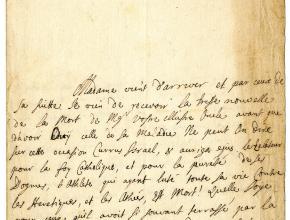 Madame vient d'arriver et par ceux de
sa suitte Je vien de recevoir la triste nouvelle
de la Mort de Mgr votre illustre Oncle avant que
d'avoir celle de sa Maladie Ne peut on dire
sur cette occasion Currus Israel, & auriga ejus
pour la foy Catholique, et pour la pureté de ses
Dogmes, o Athlete qui ayant luté toute sa vie Contre
les Heretiques, et les Athées, est Mort! Quelle Joye
pour qu'il avoit si souvent terrassés par la